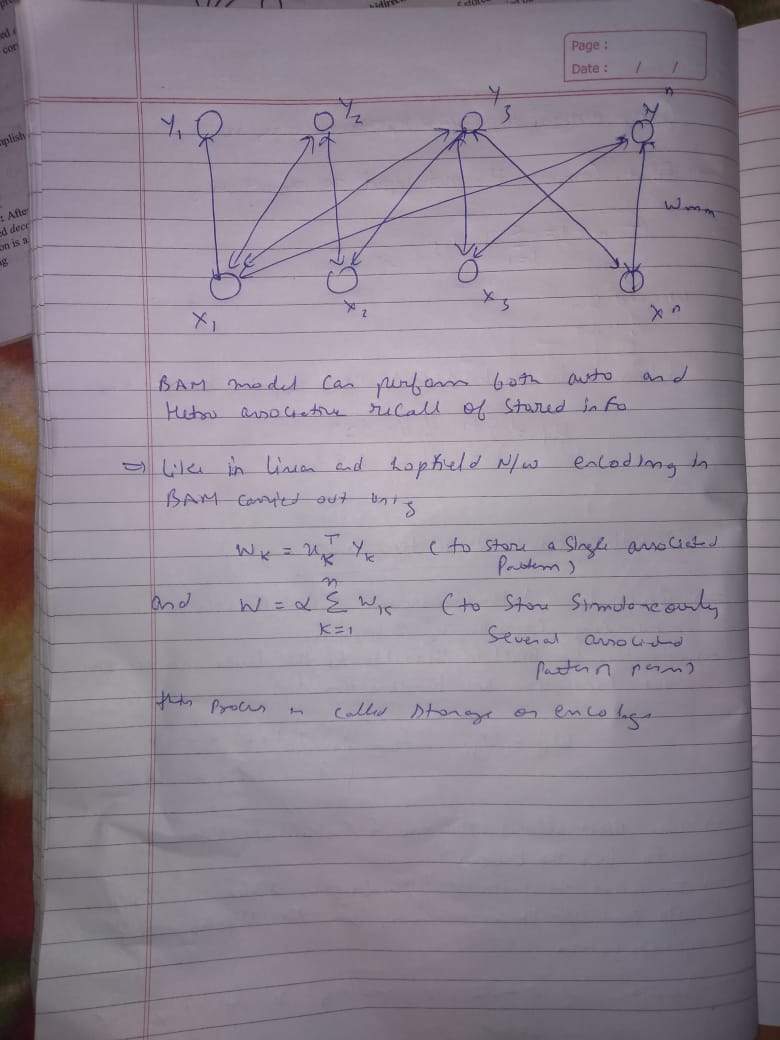 Page :
Date : / /
Y1 Y2 Y3 Yn
Wmn
X1 X2 X3 Xn
BAM model Can perform both auto and
Hetro associative recall of Stored info
⇒ Like in linear and hopfield N/w encoding in
BAM carried out using
WK = xKT YK ( to store a Single associated
Pattern )
and W = α Σ WK ( to Store Simultaneously
n
K=1
Several associated
pattern
this Process is called storage or encoding